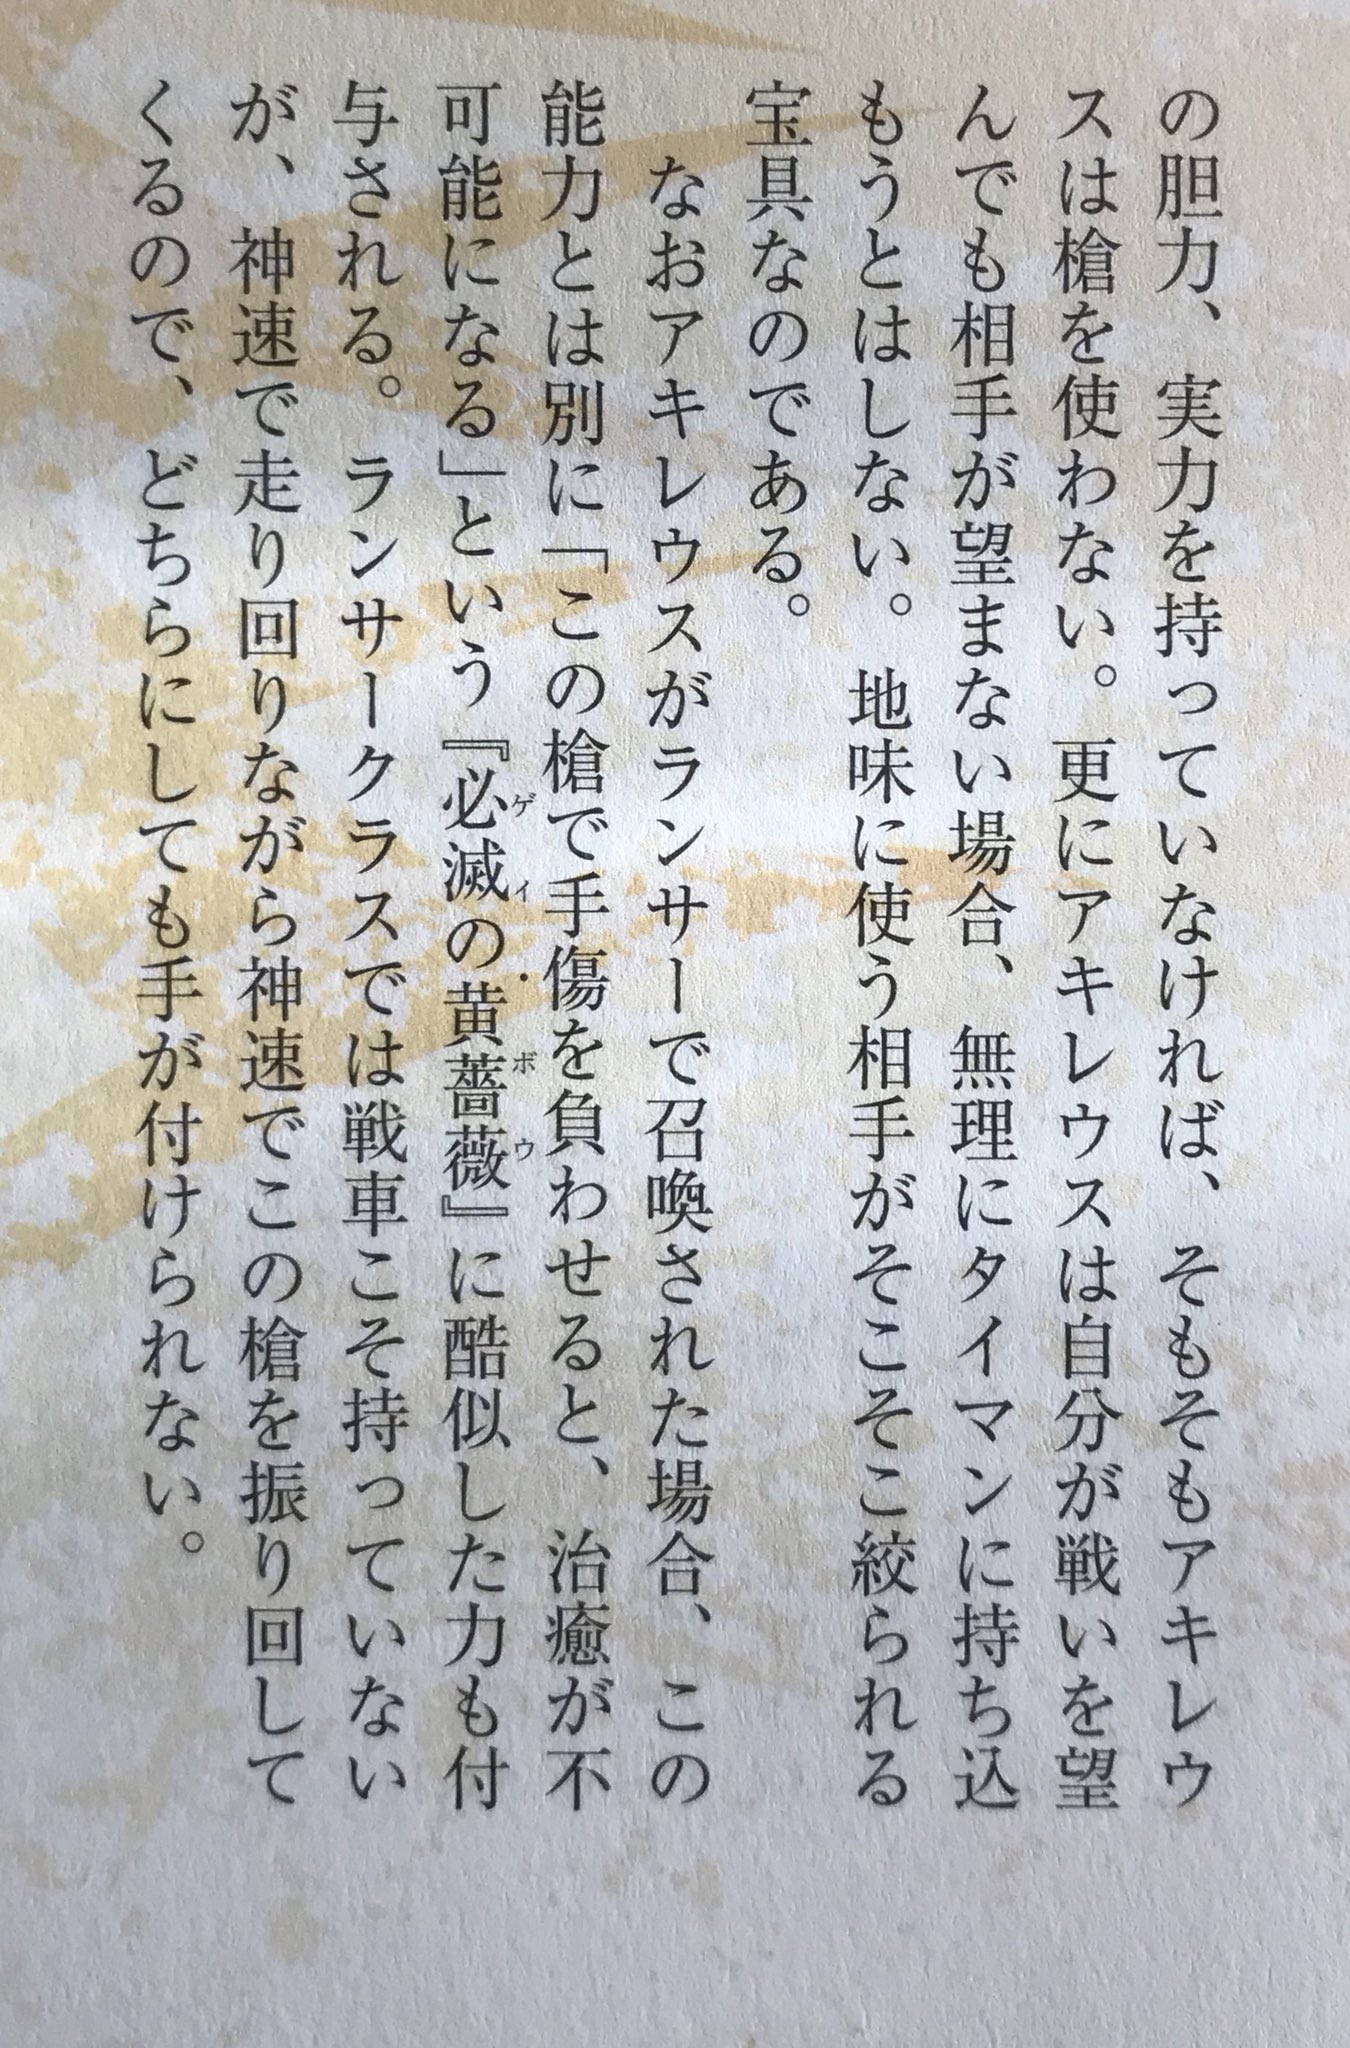 の胆力、実力を持っていなければ、そもそもアキレウ
スは槍を使わない。更にアキレウスは自分が戦いを望
んでも相手が望まない場合、無理にタイマンに持ち込
もうとはしない。地味に使う相手がそこそこ絞られる
宝具なのである。
なおアキレウスがランサーで召喚された場合、この
能力とは別に「この槍で手傷を負わせると、治癒が不
可能になる」という『必滅の黄薔薇』に酷似した力も付
ゲイ・ボウ
与される。ランサークラスでは戦車こそ持っていない
が、神速で走り回りながら神速でこの槍を振り回して
くるので、どちらにしても手が付けられない。